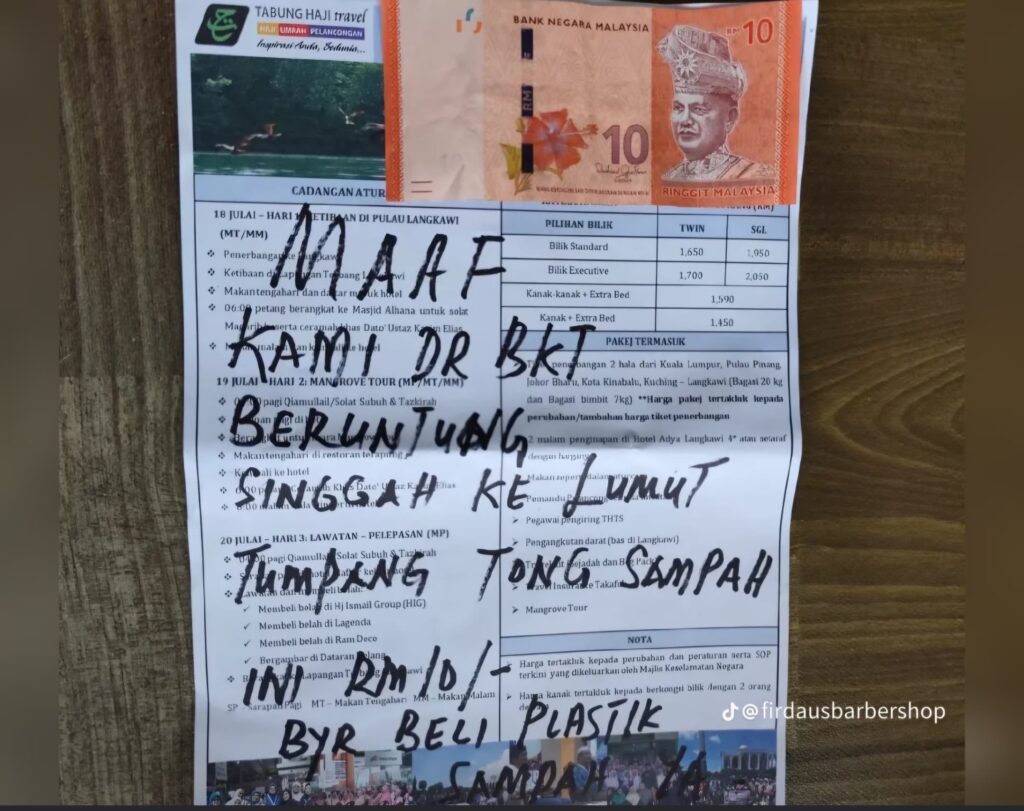 TABUNG HAJI travel
HAJI UMRAH PELANCONGAN
Inspirasi Anda, Sedunia...
BANK NEGARA MALAYSIA
RM10
RM
10
RINGGIT MALAYSIA
CADANGAN ATUR
18 JULAI – HARI 1: KETIBAAN DI PULAU LANGKAWI
(MT/MM)
Penerbangan ke Langkawi
Ketibaan di Lapangan Terbang Langkawi
Makan tengahari dan daftar masuk hotel
06:00 petang berangkat ke Masjid Alhana untuk solat
Maghrib beserta ceramah khas Dato' Ustaz Kazim Elias
19 JULAI – HARI 2: MANGROVE TOUR (MP/MT/MM)
pagi Qiamullail/Solat Subuh & Tazkirah
Makan tengahari di restoran terapung
Kembali ke hotel
20 JULAI – HARI 3: LAWATAN – PELEPASAN (MP)
pagi Qiamullail/Solat Subuh & Tazkirah
✓ Membeli belah di Hj Ismail Group (HIG)
✓ Membeli belah di Lagenda
✓ Membeli belah di Ram Deco
✓ Bergambar di Dataran Helang
SP – Sarapan Pagi MT – Makan Tengahari MM – Makan Malam
(RM)
PILIHAN BILIK TWIN SGL
Bilik Standard 1,650 1,950
Bilik Executive 1,700 2,050
Kanak-kanak + Extra Bed 1,590
Kanak + Extra Bed 1,450
PAKEJ TERMASUK
penerbangan 2 hala dari Kuala Lumpur, Pulau Pinang,
Johor Bharu, Kota Kinabalu, Kuching – Langkawi (Bagasi 20 kg
dan Bagasi bimbit 7kg) **Harga pakej tertakluk kepada
perubahan/tambahan harga tiket penerbangan
2 malam penginapan di Hotel Adya Langkawi 4* atau setaraf
Pegawai pengiring THTS
Pengangkutan darat (bas di Langkawi)
Travel Insurance Takaful
Mangrove Tour
NOTA
Harga tertakluk kepada perubahan dan peraturan serta SOP
terkini yang dikeluarkan oleh Majlis Keselamatan Negara
Harga kanak tertakluk kepada berkongsi bilik dengan 2 orang
MAAF
KAMI DR BKT
BERUNTUNG
SINGGAH KE LUMUT
TUMPANG TONG SAMPAH
INI RM10/-
BYR BELI PLASTIK
SAMPAH YA
@firdausbarbershop